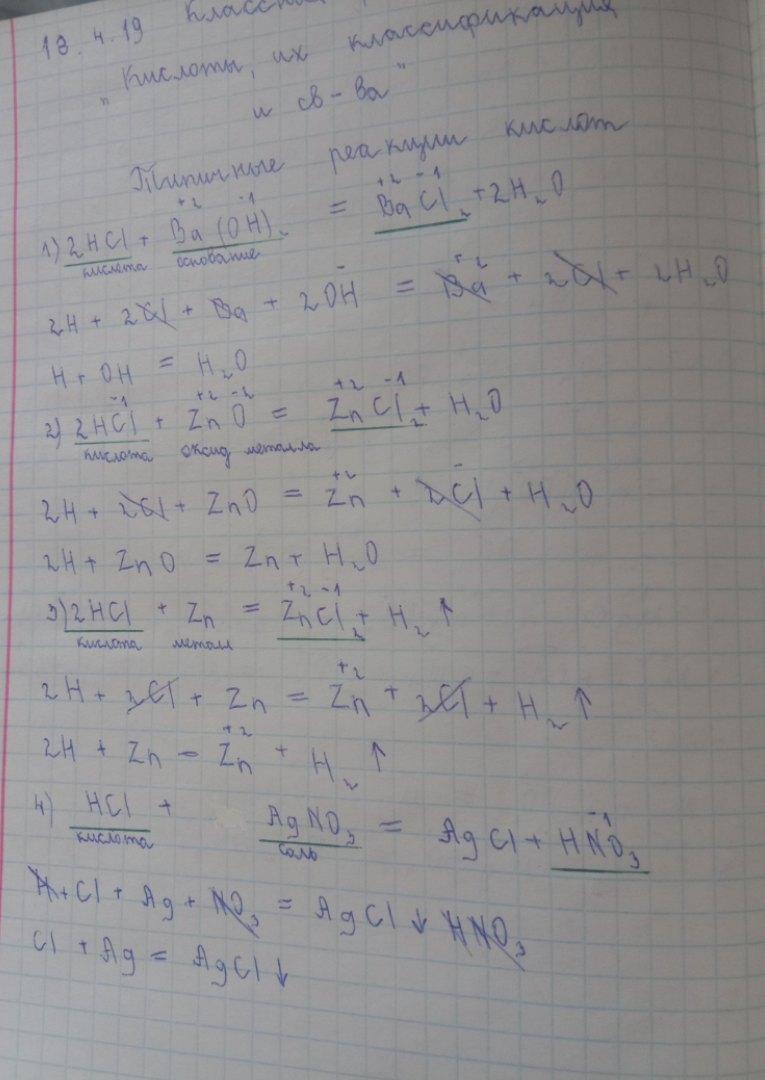 18.4.19
"Кислоты, их классификация
и св-ва"
Типичные реакции кислот
+2 -1 +2 -1
1) 2HCl + Ba(OH)₂ = BaCl₂ + 2H₂O
кислота основание
- +2
2H + 2Cl + Ba + 2OH = Ba + 2Cl + 2H₂O
H + OH = H₂O
-1 +2 -2 +2 -1
2) 2HCl + ZnO = ZnCl₂ + H₂O
кислота оксид металла
+2 -
2H + 2Cl + ZnO = Zn + 2Cl + H₂O
2H + ZnO = Zn + H₂O
+2 -1
3) 2HCl + Zn = ZnCl₂ + H₂↑
кислота металл
+2
2H + 2Cl + Zn = Zn + 2Cl + H₂↑
+2
2H + Zn = Zn + H₂↑
-1
4) HCl + AgNO₃ = AgCl + HNO₃
кислота соль
H + Cl + Ag + NO₃ = AgCl↓ HNO₃
Cl + Ag = AgCl↓